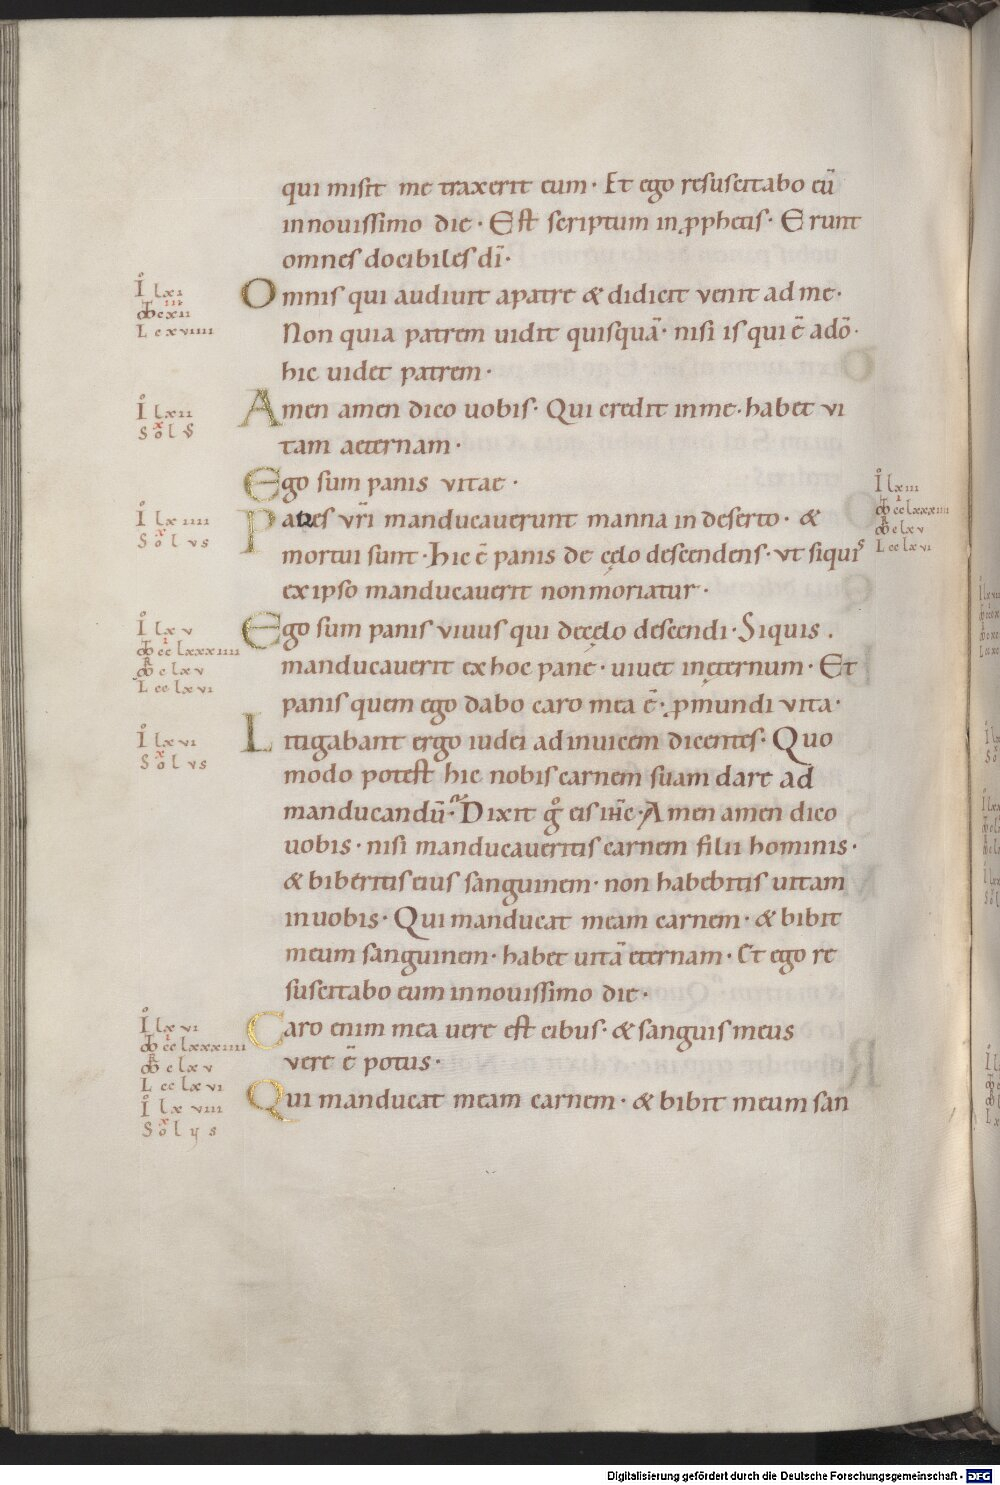 qui misit me traxerit eum · Et ego resuscitabo eū
in nouissimo die · Est scriptum in ꝓphetis · Erunt
omnes docibiles dī ·
Omnis qui audiuit a patre & didicit venit ad me ·
Non quia patrem uidit quisquā · nisi is qui ē a dō ·
hic uidet patrem ·
Amen amen dico uobis · Qui credit in me · habet vi
tam aeternam ·
Ego sum panis vitae ·
Patres vr̄i manducauerunt manna in deserto · &
mortui sunt · Hic ē panis de cęlo descendens · vt siquis
ex ipso manducauerit non moriatur ·
Ego sum panis viuus qui de cęlo descendi · Siquis .
manducauerit ex hoc pane · uiuet in ęternum · Et
panis quem ego dabo caro mea ē · ꝓ mundi vita ·
Litigabant ergo iudei ad inuicem dicentes · Quo
modo potest hic nobis carnem suam dare ad
manducandū · Dixit gͦ eis ihc̄ · Amen amen dico
uobis · nisi manducaueritis carnem filii hominis ·
& biberitis eius sanguinem · non habebitis uitam
in uobis · Qui manducat meam carnem · & bibit
meum sanguinem · habet uitā eternam · Et ego re
suscitabo eum in nouissimo die ·
Caro enim mea vere est cibus · & sanguis meus
vere ē potus ·
Qui manducat meam carnem · & bibit meum san
I lxi
L cxviiii
I lxii
S o l
I lxiiii
S o l vs
I lxiii
cclxxxiiii
c lxv
L cclxvi
I lxv
cclxxxiiii
c lxv
L cclxvi
I lxvi
S o l vs
I lxvi
cclxxxiiii
c lxv
L cclxvi
I lxviii
S o l ys
Digitalisierung gefördert durch die Deutsche Forschungsgemeinschaft - DFG